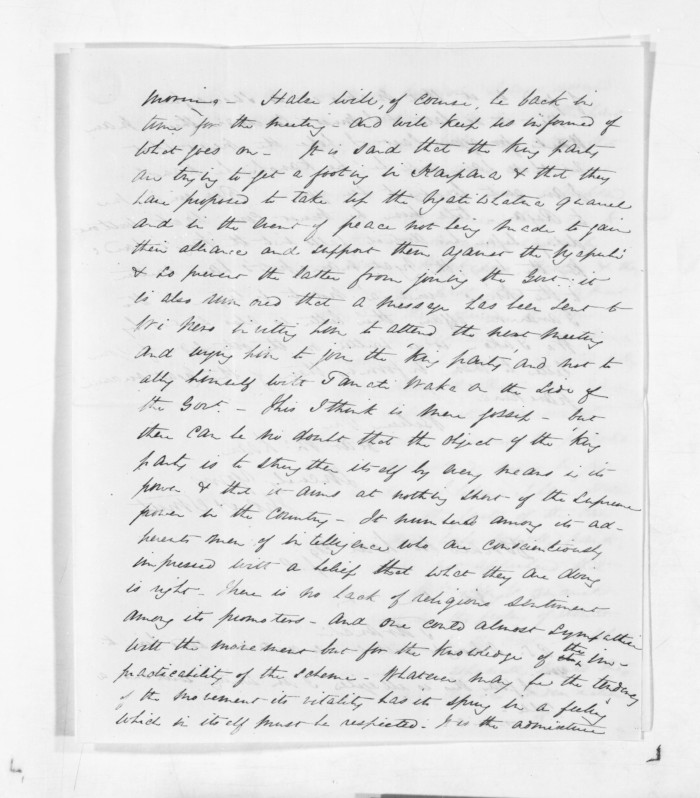 morning - Halse will, of course, be back in
time for the meeting - and will keep us informed of
what goes on - It is said that the King party
are trying to get a footing in Kaipara & that they
have proposed to take up the Ngatiwhatua quarrel
and in the event of peace not being made to gain
their alliance and support them against the Ngapuhi
& so prevent the latter from joining the Govt: it
is also rumored that a message has been sent to
Wi inviting him to attend the next meeting
and urging him to join the King party and not to
ally himself with Tamati Waka on the side of
the Govt. - This I think is mere gossip - but
there can be no doubt that the object of the 'King
party is to strengthen itself by every means in its
power & that it aims at nothing short of the supreme
power in the country - It numbers among its ad-
herents men of intelligence who are conscientiously
impressed with a belief that what they are doing
is right - There is no lack of religious sentiment
among its promoters - and one could almost sympathise
with the movement but for the knowledge of the im-
practicability of the scheme - Whatever may be the tendency
of the movement its vitality has its spring in a feeling
which in itself must be respected - It is the admixture